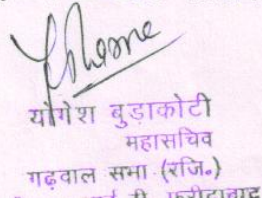 योगेश बुड़ाकोटी
महासचिव
गढ़वाल सभा (रजि॰)
फरीदाबाद